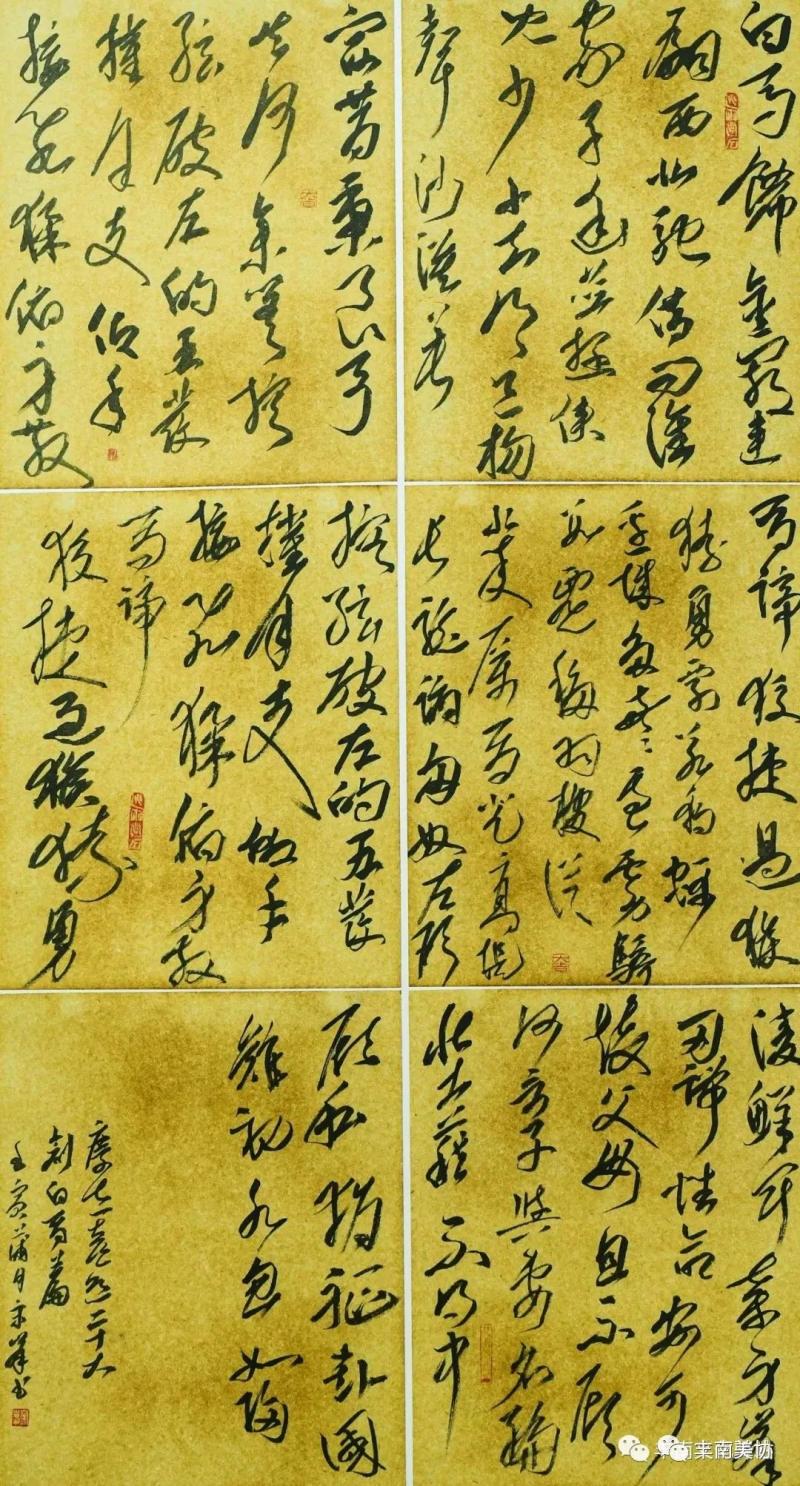 白馬飾金羈連
翩西北馳借問誰
家子幽並遊俠
兒少小去鄉邑揚
聲沙漠垂
宿昔秉良弓
矢何參差控
弦破左的右發
摧月支仰手
接飛猱俯身散
馬蹄狡捷過猴
猿勇剽若豹螭
邊城多警急虜騎
數遷移羽檄從
北來厲馬登高堤
長驅蹈匈奴左顧
控弦破左的右發
摧月支仰手
接飛猱俯身散
馬蹄
狡捷過猴猿勇
凌鮮卑棄身鋒
刃端性命安可
懷父母且不顧
何言子與妻名編
壯士籍不得中
顧私捐軀赴國
難視死忽如歸
白馬篇
壬寅蒲月
南美协